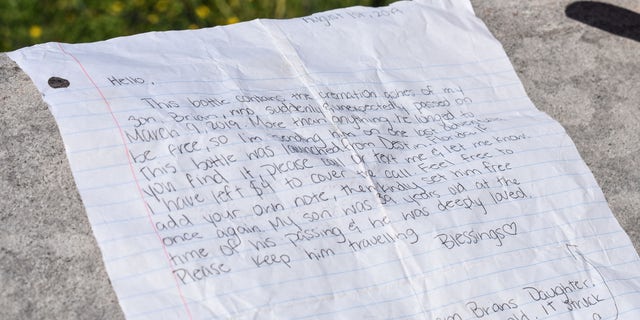 August 1st, 2019
Hello,
This bottle contains the cremation ashes of my
son Brian, who suddenly & unexpectedly passed on
March 9, 2019. More than anything, he longed to
be free, so I'm sending him on one last adventure.
This bottle was launched from Destin, Florida. If
you find it, please call or text me & let me know.
I have left $ to cover the call. Feel free to
add your own note, then kindly set him free
once again. My son was 39 years old at the
time of his passing & he was deeply loved.
Please keep him traveling
Blessings♡
Brians Daughter.
it struck